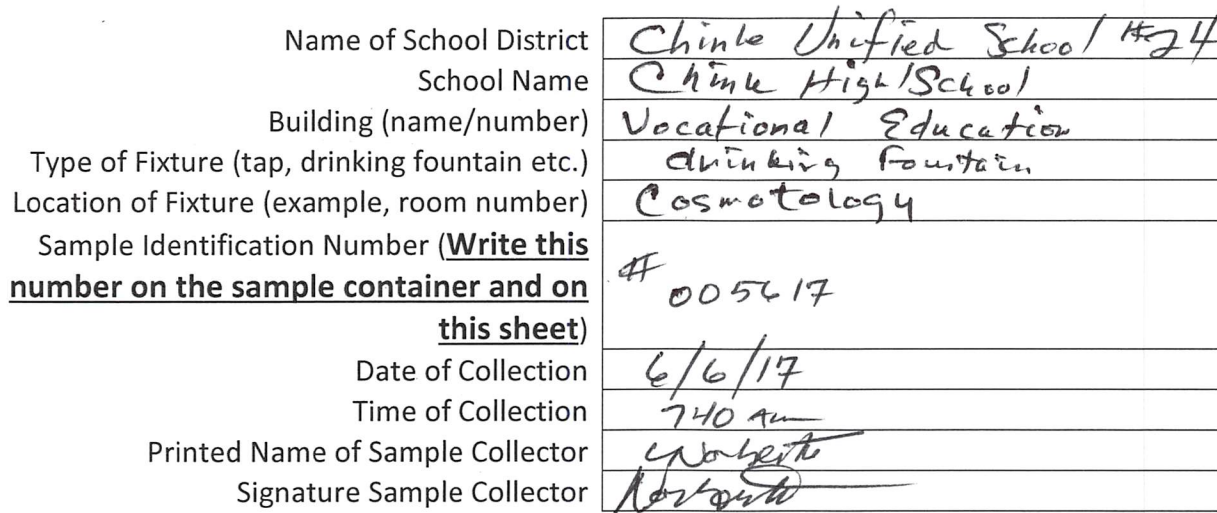 Name of School District Chinle Unified School #24
School Name Chinle High School
Building (name/number) Vocational Education
Type of Fixture (tap, drinking fountain etc.) drinking Fountain
Location of Fixture (example, room number) Cosmotology
Sample Identification Number (Write this
number on the sample container and on
this sheet)
# 005617
Date of Collection 6/6/17
Time of Collection 740 Am
Printed Name of Sample Collector
Signature Sample Collector